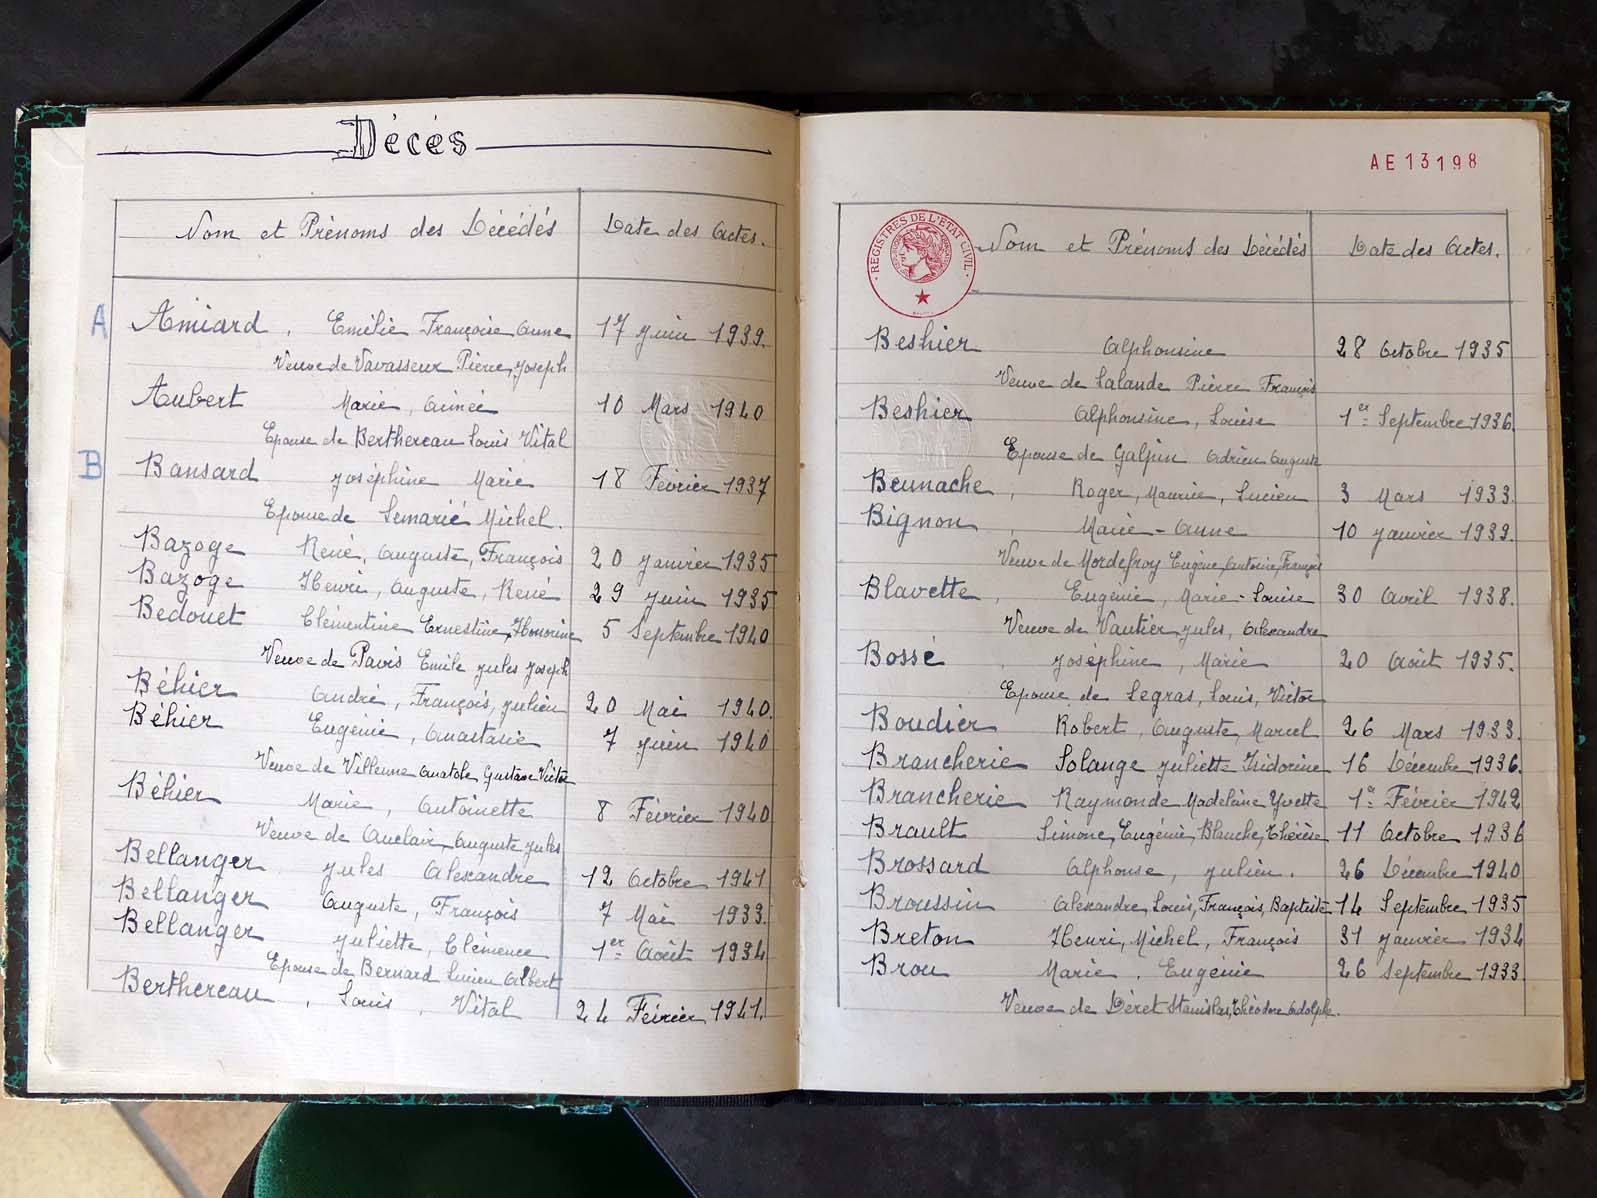 Décès
Nom et Prénoms des Décédés Date des Actes.
A Amiard, Emélie Françoise Anne 17 Juin 1939.
Veuve de Vavasseur Pierre, Joseph
Aubert Marie, Aimée 10 Mars 1940
Epouse de Berthereau Louis Vital
B Bansard Joséphine Marie 18 Février 1937
Epouse de Lemarié Michel.
Bazoge René, Auguste, François 20 Janvier 1935
Bazoge Henri, Auguste, René 29 Juin 1935
Bedouet Clémentine Ernestine, Honorine 5 Septembre 1940
Veuve de Pavis Emile Jules Joseph
Béhier André, François, Julien 20 Mai 1940.
Béhier Eugénie, Anastasie 7 Juin 1940
Veuve de Villenne Anatole Gustave Victor
Béhier Marie, Antoinette 8 Février 1940
Veuve de Auclair Auguste Jules
Bellanger Jules Alexandre 12 Octobre 1941
Bellanger Auguste, François 7 Mai 1933.
Bellanger Juliette, Clémence 1er Août 1934
Epouse de Bernard Lucien Albert
Berthereau, Louis, Vital 24 Février 1941.
AE 13198
REGISTRES DE L'ETAT CIVIL
Nom et Prénoms des Décédés Date des Actes.
Beshier Alphonsine 28 Octobre 1935
Veuve de Lalande Pierre François
Beshier Alphonsine, Louise 1er Septembre 1936.
Epouse de Galpin Adrien Auguste
Beunache, Roger, Maurice, Lucien 3 Mars 1933.
Bignon, Marie-Anne 10 Janvier 1939.
Veuve de Mordefroy Eugène, Antoine, François
Blavette, Eugénie, Marie-Louise 30 Avril 1938.
Veuve de Vautier Jules, Alexandre
Bossé Joséphine, Marie 20 Août 1935.
Epouse de Legras, Louis, Victor
Boudier Robert, Auguste, Marcel 26 Mars 1933.
Brancherie Solange Juliette Isidorine 16 Décembre 1936.
Brancherie Raymonde Madeleine Yvette 1er Février 1942
Brault Simone, Eugénie, Blanche, Thérèse 11 Octobre 1936
Brossard Alphonse, Julien. 26 Décembre 1940
Broussin Alexandre, Louis, François, Baptiste 14 Septembre 1935
Breton Henri, Michel, François 31 Janvier 1934
Brou Marie, Eugénie 26 Septembre 1933.
Veuve de Déret Stanislas, Théodore Adolphe.